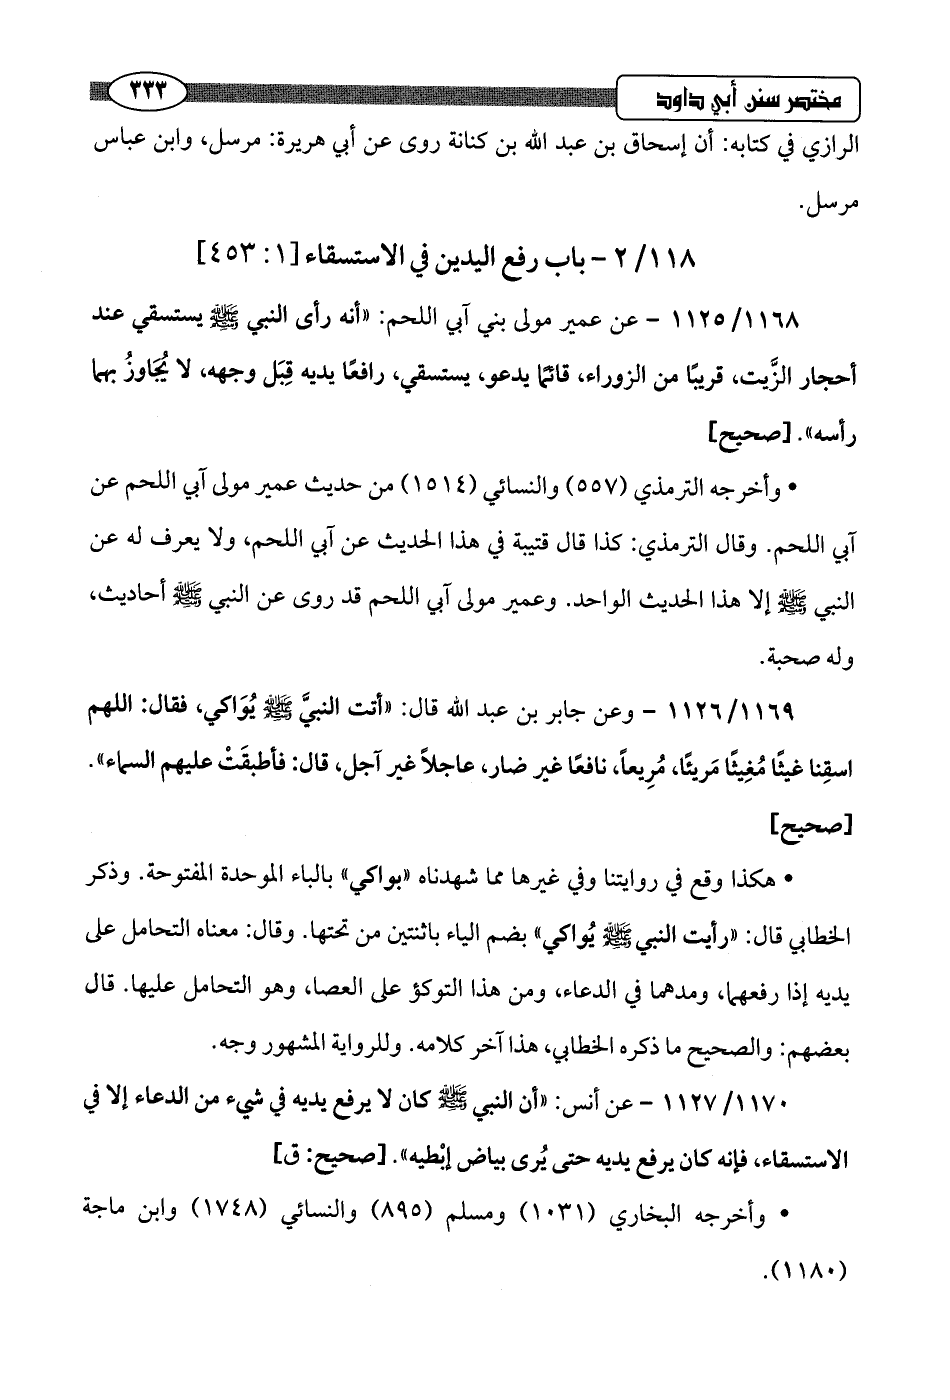 مختصر سنن أبي داود
٣٣٣
الرازي في كتابه: أن إسحاق بن عبد الله بن كنانة روى عن أبي هريرة: مرسل، وابن عباس
مرسل.
٢/١١٨ – باب رفع اليدين في الاستسقاء [١: ٤٥٣]
١١٢٥/١١٦٨ – عن عمير مولى بني آبي اللحم: «أنه رأى النبي ﷺ يستسقي عند
أحجار الزَّيت، قريبًا من الزوراء، قائمًا يدعو، يستسقي، رافعًا يديه قِبَل وجهه، لا يُجَاوزُ بهما
رأسه». [صحيح]
• وأخرجه الترمذي (٥٥٧) والنسائي (١٥١٤) من حديث عمير مولى آبي اللحم عن
آبي اللحم. وقال الترمذي: كذا قال قتيبة في هذا الحديث عن آبي اللحم، ولا يعرف له عن
النبي ﷺ إلا هذا الحديث الواحد. وعمير مولى آبي اللحم قد روى عن النبي ﷺ أحاديث،
وله صحبة.
١١٢٦/١١٦٩ – وعن جابر بن عبد الله قال: «أتت النبيَّ ﷺ يُوَاكي، فقال: اللهم
اسقِنا غيثًا مُغِيثًا مَريئًا، مُرِيعاً، نافعًا غير ضار، عاجلاً غير آجل، قال: فأطبقَتْ عليهم السماء».
[صحيح]
• هكذا وقع في روايتنا وفي غيرها مما شهدناه «بواكي» بالباء الموحدة المفتوحة. وذكر
الخطابي قال: «رأيت النبي ﷺ يُواكي» بضم الياء باثنتين من تحتها. وقال: معناه التحامل على
يديه إذا رفعهما، ومدهما في الدعاء، ومن هذا التوكؤ على العصا، وهو التحامل عليها. قال
بعضهم: والصحيح ما ذكره الخطابي، هذا آخر كلامه. وللرواية المشهور وجه.
١١٢٧/١١٧٠ – عن أنس: «أن النبي ﷺ كان لا يرفع يديه في شيء من الدعاء إلا في
الاستسقاء، فإنه كان يرفع يديه حتى يُرى بياض إبْطيه». [صحيح: ق]
• وأخرجه البخاري (١٠٣١) ومسلم (٨٩٥) والنسائي (١٧٤٨) وابن ماجة
(١١٨٠).